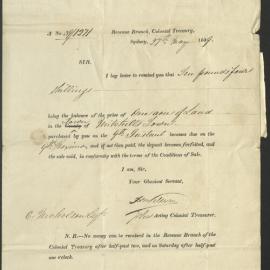 A No 39/1271
Revenue Branch, Colonial Treasury,
Sydney, 27th May 1839.
SIR,
I beg leave to remind you that Ten pounds four
shillings
being the balance of the price of one acre of Land
in the of Town
purchased by you on the 9th Instant becomes due on the
9th Proximo, and if not then paid, the deposit becomes forfeited, and
the sale void, in conformity with the terms of the Conditions of Sale.
I am, Sir,
Your Obedient Servant,
Acting Colonial Treasurer.
C. Nicholson Esqr
N. B.—No money can be received in the Revenue Branch of the
Colonial Treasury after half-past two, and on Saturday after half-past
one o'clock.